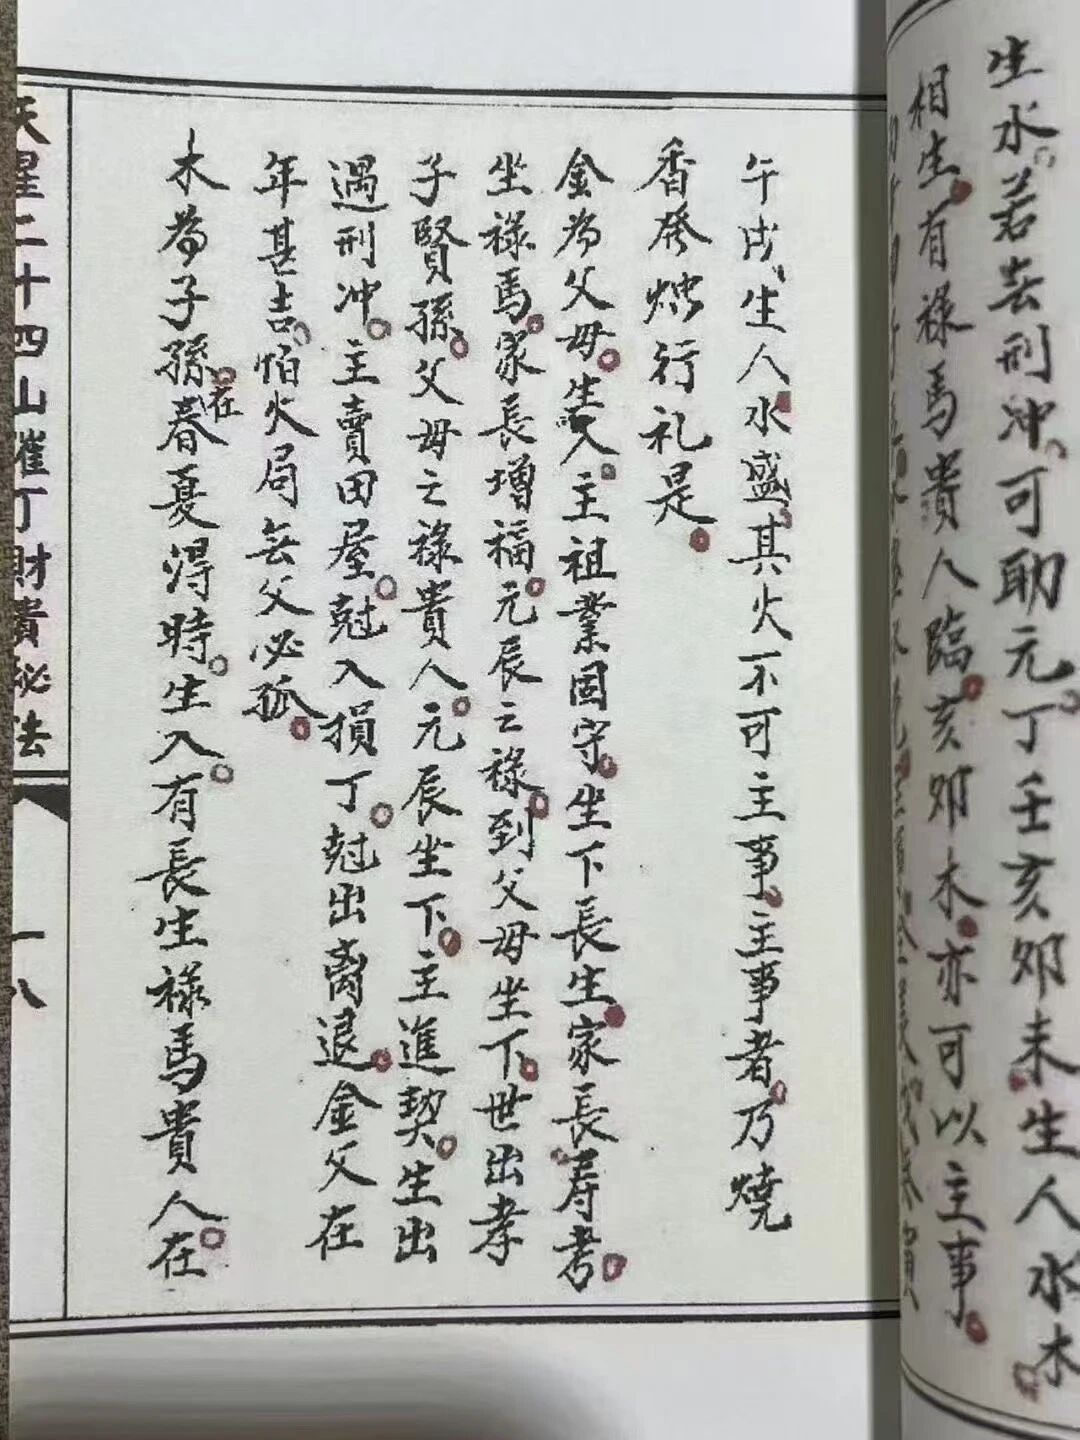 生水。若无刑冲、可助元。丁壬亥卯未生人水木
相生。有禄馬貴人臨。亥卯木。亦可以主事。
午戌、生人水盛。其火不可主事。主事者。乃燒
香發烛行礼是。
金為父母。生入。主祖業固守。坐下長生。家長寿考。
坐禄馬。家長增福。元辰之禄。到父母坐下。世出孝
子賢孫。父母之禄貴人。元辰坐下。主進契。生出
遇刑冲。主賣田屋。尅入損丁。尅出离退。金父在
年甚吉。怕火局无父必孤。
木為子孫。在春夏得時。生入。有長生禄馬貴人。在
天星二十四山催丁財貴秘法
一八